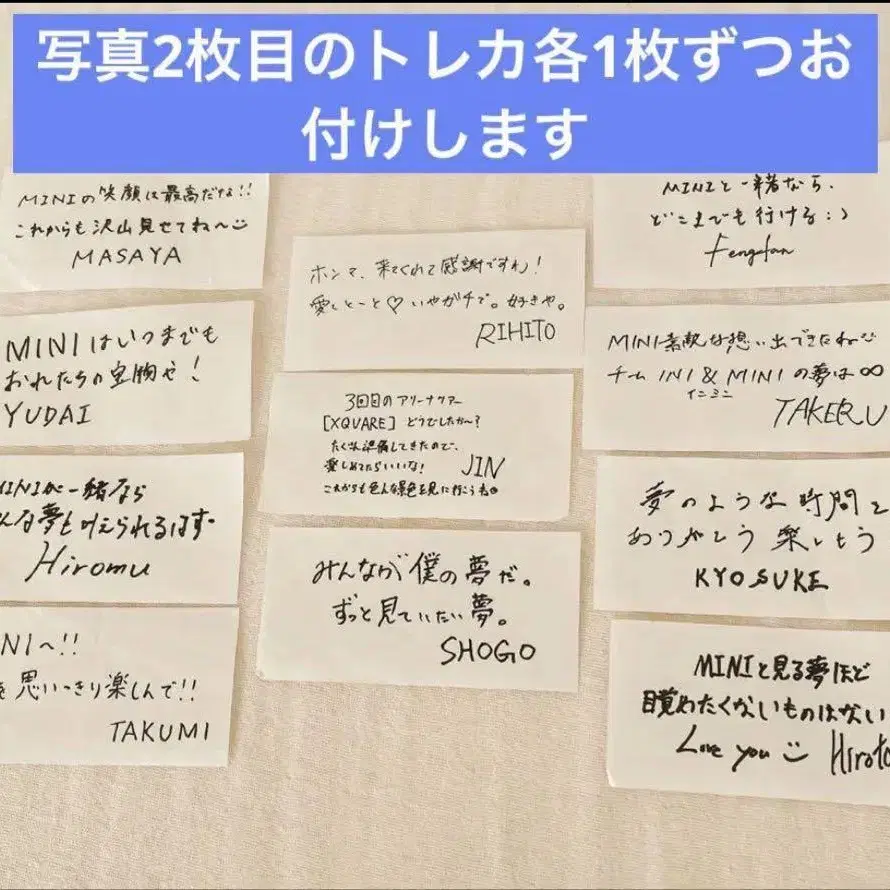 写真2枚目のトレカ各1枚ずつお
付けします
MINIの笑顔は最高だな!!
これからも沢山見せてね〜
MASAYA
MINIはいつまでも
おれたちの宝物や!
YUDAI
MINIが一緒なら
んな夢も叶えられるはず。
Hiromu
NIへ!!
を思いっきり楽しんで!!
TAKUMI
ホンマ、来てくれて感謝ですわ!
愛しとーと♡いやガチで。好きや。
RIHITO
3回目のアリーナツアー
[XQUARE] どうでしたか〜?
たくさん準備してきたので、
楽しめてたらいいな!
これからも色んな景色を見に行こうね
JIN
みんなが僕の夢だ。
ずっと見ていたい夢。
SHOGO
MINIと一緒なら、
どこまでも行ける:)
Fengfan
MINI素敵な想い出できたね〜
チームINI&MINIの夢は∞
イニミニ
TAKERU
夢のような時間を
ありがとう 楽しもう
KYOSUKE
MINIと見る夢ほど
目覚めたくないものはない
Love you Hiroto